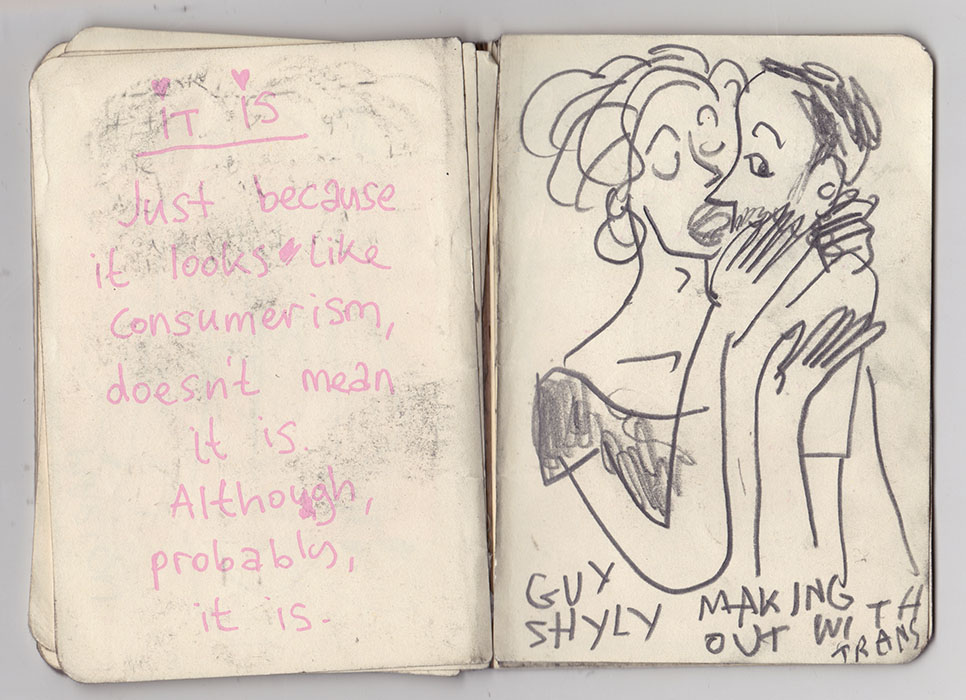 it is
Just because
it looks like
consumerism,
doesn't mean
it is.
Although,
probably,
it is.
GUY MAKING
SHYLY OUT WITH
TRANS